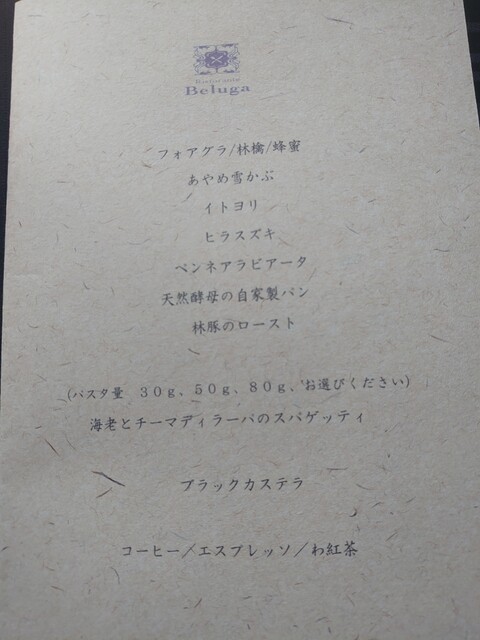 Ristorante
Beluga
フォアグラ/林檎/蜂蜜
あやめ雪かぶ
イトヨリ
ヒラスズキ
ペンネアラビアータ
天然酵母の自家製パン
林豚のロースト
(パスタ量　３０ｇ、５０ｇ、８０ｇ、お選びください)
海老とチーマディラーパのスパゲッティ
ブラックカステラ
コーヒー／エスプレッソ／わ紅茶